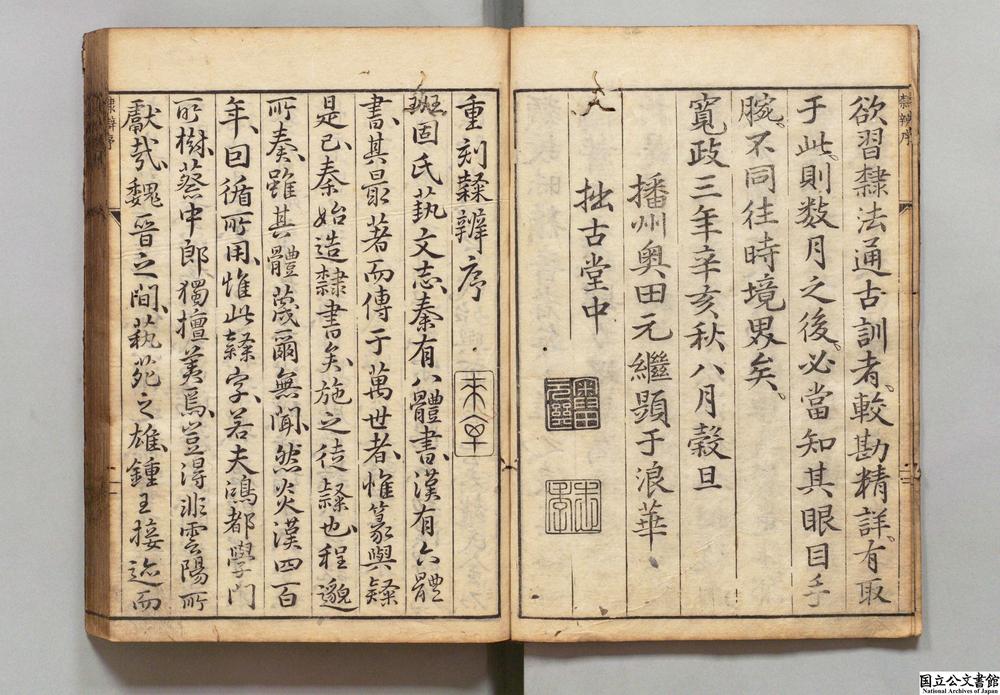 欲習隸法通古訓者、較勘精詳、有取
于此、則数月之後、必當知其眼目手
腕、不同往時境界矣、
寬政三年辛亥秋八月穀旦
播州奥田元繼題于浪華
拙古堂中
隸辨序
重刻隸辨序
班固氏藝文志、秦有八體書、漢有六體
書、其最著而傳于萬世者、惟篆與隸
是已、秦始造隸書矣、施之徒隸也、程邈
所奏、雖其體蔑爾無聞、然炎漢四百
年、因循所用、惟此隸字、若夫鴻都學門
所樹、蔡中郎獨擅美焉、豈得非雲陽所
獻哉、魏晉之間、藝苑之雄、鍾王接迹而
隸辨序
国立公文書館
National Archives of Japan